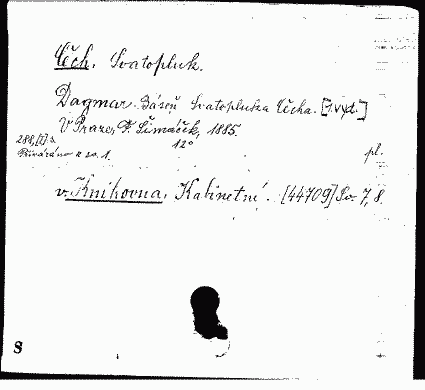 Čech, Svatopluk.
Dagmar. Báseň Svatopluka Čecha. [1. vyd.]
V Praze, F. Šimáček, 1885.
288, [I] s. 12°
Přivázáno k sv. 1. pl.
v. Knihovna, Kabinetní. [44709] Sv. 7, 8.
8